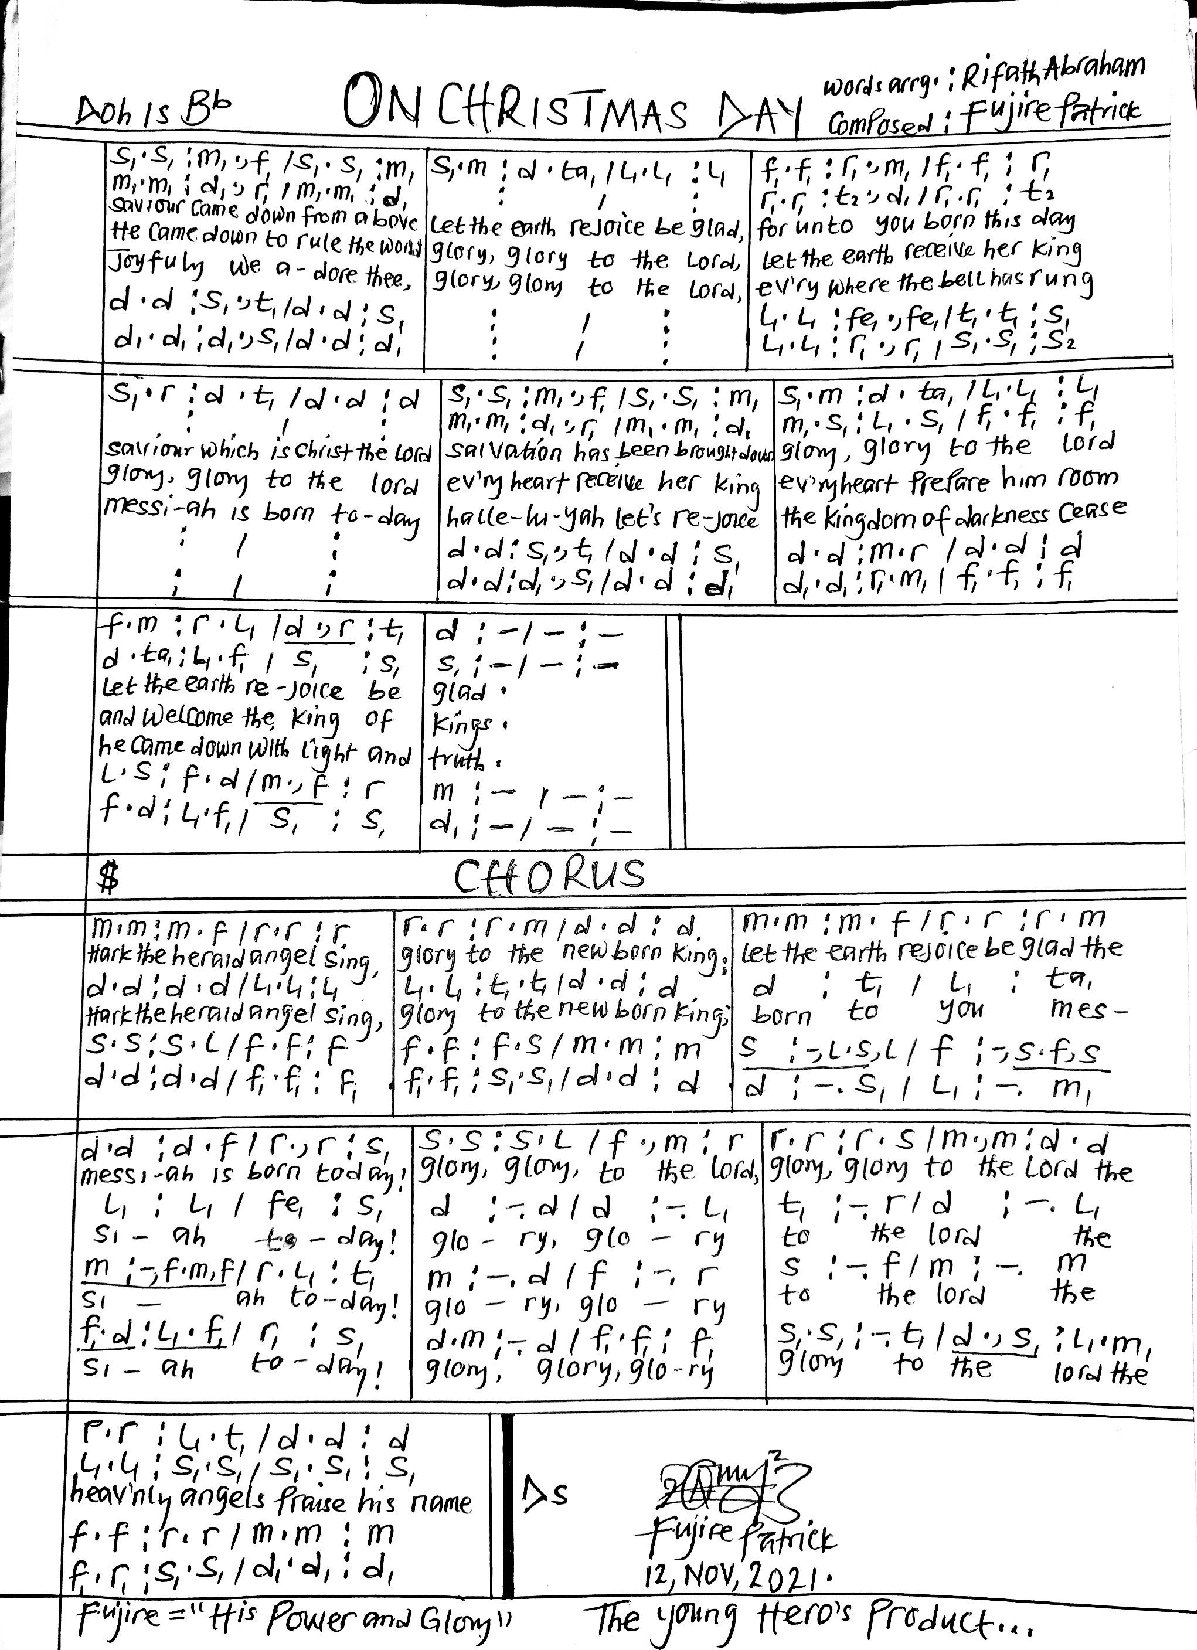 Doh Is Bb
ON CHRISTMAS DAY
words arrg. : Rifath Abraham
Composed : Fujire Patrick
s₁.s₁ :m₁.,f₁ /s₁.s₁ :m₁
m₁.m₁ :d₁.,r₁ /m₁.m₁ :d₁
saviour came down from above
He came down to rule the world
Joyfuly we a-dore thee,
d.d :s₁.,t₁ /d.d :s₁
d₁.d₁ :d₁.,s₁ /d.d :d₁
s₁.m :d.ta₁ /L₁.L₁ :L₁
: / :
Let the earth rejoice be glad,
glory, glory to the Lord,
glory, glory to the Lord,
: / :
: / :
f₁.f₁ :r₁.,m₁ /f₁.f₁ :r₁
r₁.r₁ :t₂.,d₁ /r₁.r₁ :t₂
for unto you born this day
Let the earth receive her king
ev'ry where the bell has rung
L₁.L₁ :fe₁.,fe₁ /t₁.t₁ :s₁
L₁.L₁ :r₁.,r₁ /s₁.s₁ :s₂
s₁.r :d.t₁ /d.d :d
: / :
saviour which is Christ the Lord
glory, glory to the lord
messi-ah is born to-day
: / :
: / :
s₁.s₁ :m₁.,f₁ /s₁.s₁ :m₁
m₁.m₁ :d₁.,r₁ /m₁.m₁ :d₁
salvation has been brought down
ev'ry heart receive her king
halle-lu-yah let's re-joice
d.d :s₁.,t₁ /d.d :s₁
d.d :d₁.,s₁ /d.d :d₁
s₁.m :d.ta₁ /L₁.L₁ :L₁
m₁.s₁ :L₁.s₁ /f₁.f₁ :f₁
glory, glory to the lord
ev'ry heart prefare him room
the kingdom of darkness cease
d.d :m.r /d.d :d
d₁.d₁ :r₁.m₁ /f₁.f₁ :f₁
f.m :r.L₁ /d.,r :t₁
d.ta₁ :L₁.f₁ /s₁ :s₁
Let the earth re-joice be
and welcome the king of
he came down with light and
L.s :f.d /m.,f :r
f.d :L₁.f₁ /s₁ :s₁
d :-/- :-
s₁ :-/- :-
glad.
kings.
truth.
m :- / - :-
d₁ :-/- :-
$ CHORUS
m.m :m.f /r.r :r
Hark the herald angel sing,
d.d :d.d /L₁.L₁ :L₁
Hark the herald angel sing,
s.s :s.L /f.f :f
d.d :d.d /f₁.f₁ :f₁
r.r :r.m /d.d :d
glory to the new born king;
L₁.L₁ :t₁.t₁ /d.d :d
glory to the new born king;
f.f :f.s /m.m :m
f₁.f₁ :s₁.s₁ /d.d :d
m.m :m.f /r.r :r.m
Let the earth rejoice be glad the
d :t₁ /L₁ :ta₁
born to you mes-
s :-,L.s,L / f :-,s.f,s
d :-.s₁ /L₁ :-.m₁
d.d :d.f /r.,r :s₁
messi-ah is born today!
L₁ :L₁ /fe₁ :s₁
si - ah to - day!
m :-,f.m,f /r.L₁ :t₁
si - ah to-day!
f₁.d :L₁.f₁ /r₁ :s₁
si - ah to - day!
s.s :s.L /f.,m :r
glory, glory, to the lord,
d :-.d /d :-.L₁
glo - ry, glo - ry
m :-.d /f :-.r
glo - ry, glo - ry
d.m :-.d /f₁.f₁ :f₁
glory, glory, glo-ry
r.r :r.s /m.,m :d.d
glory, glory to the Lord the
t₁ :-.r /d :-.L₁
to the lord the
s :-.f /m :-.m
to the lord the
s₁.s₁ :-.t₁ /d.,s₁ :L₁.m₁
glory to the lord the
r.r :L₁.t₁ /d.d :d
L₁.L₁ :s₁.s₁ /s₁.s₁ :s₁
heav'nly angels praise his name
f.f :r.r /m.m :m
f₁.r₁ :s₁.s₁ /d₁.d₁ :d₁
Ds
Fujire Patrick
12, NOV, 2021.
Fujire = "His Power and Glory"
The young Hero's Product...